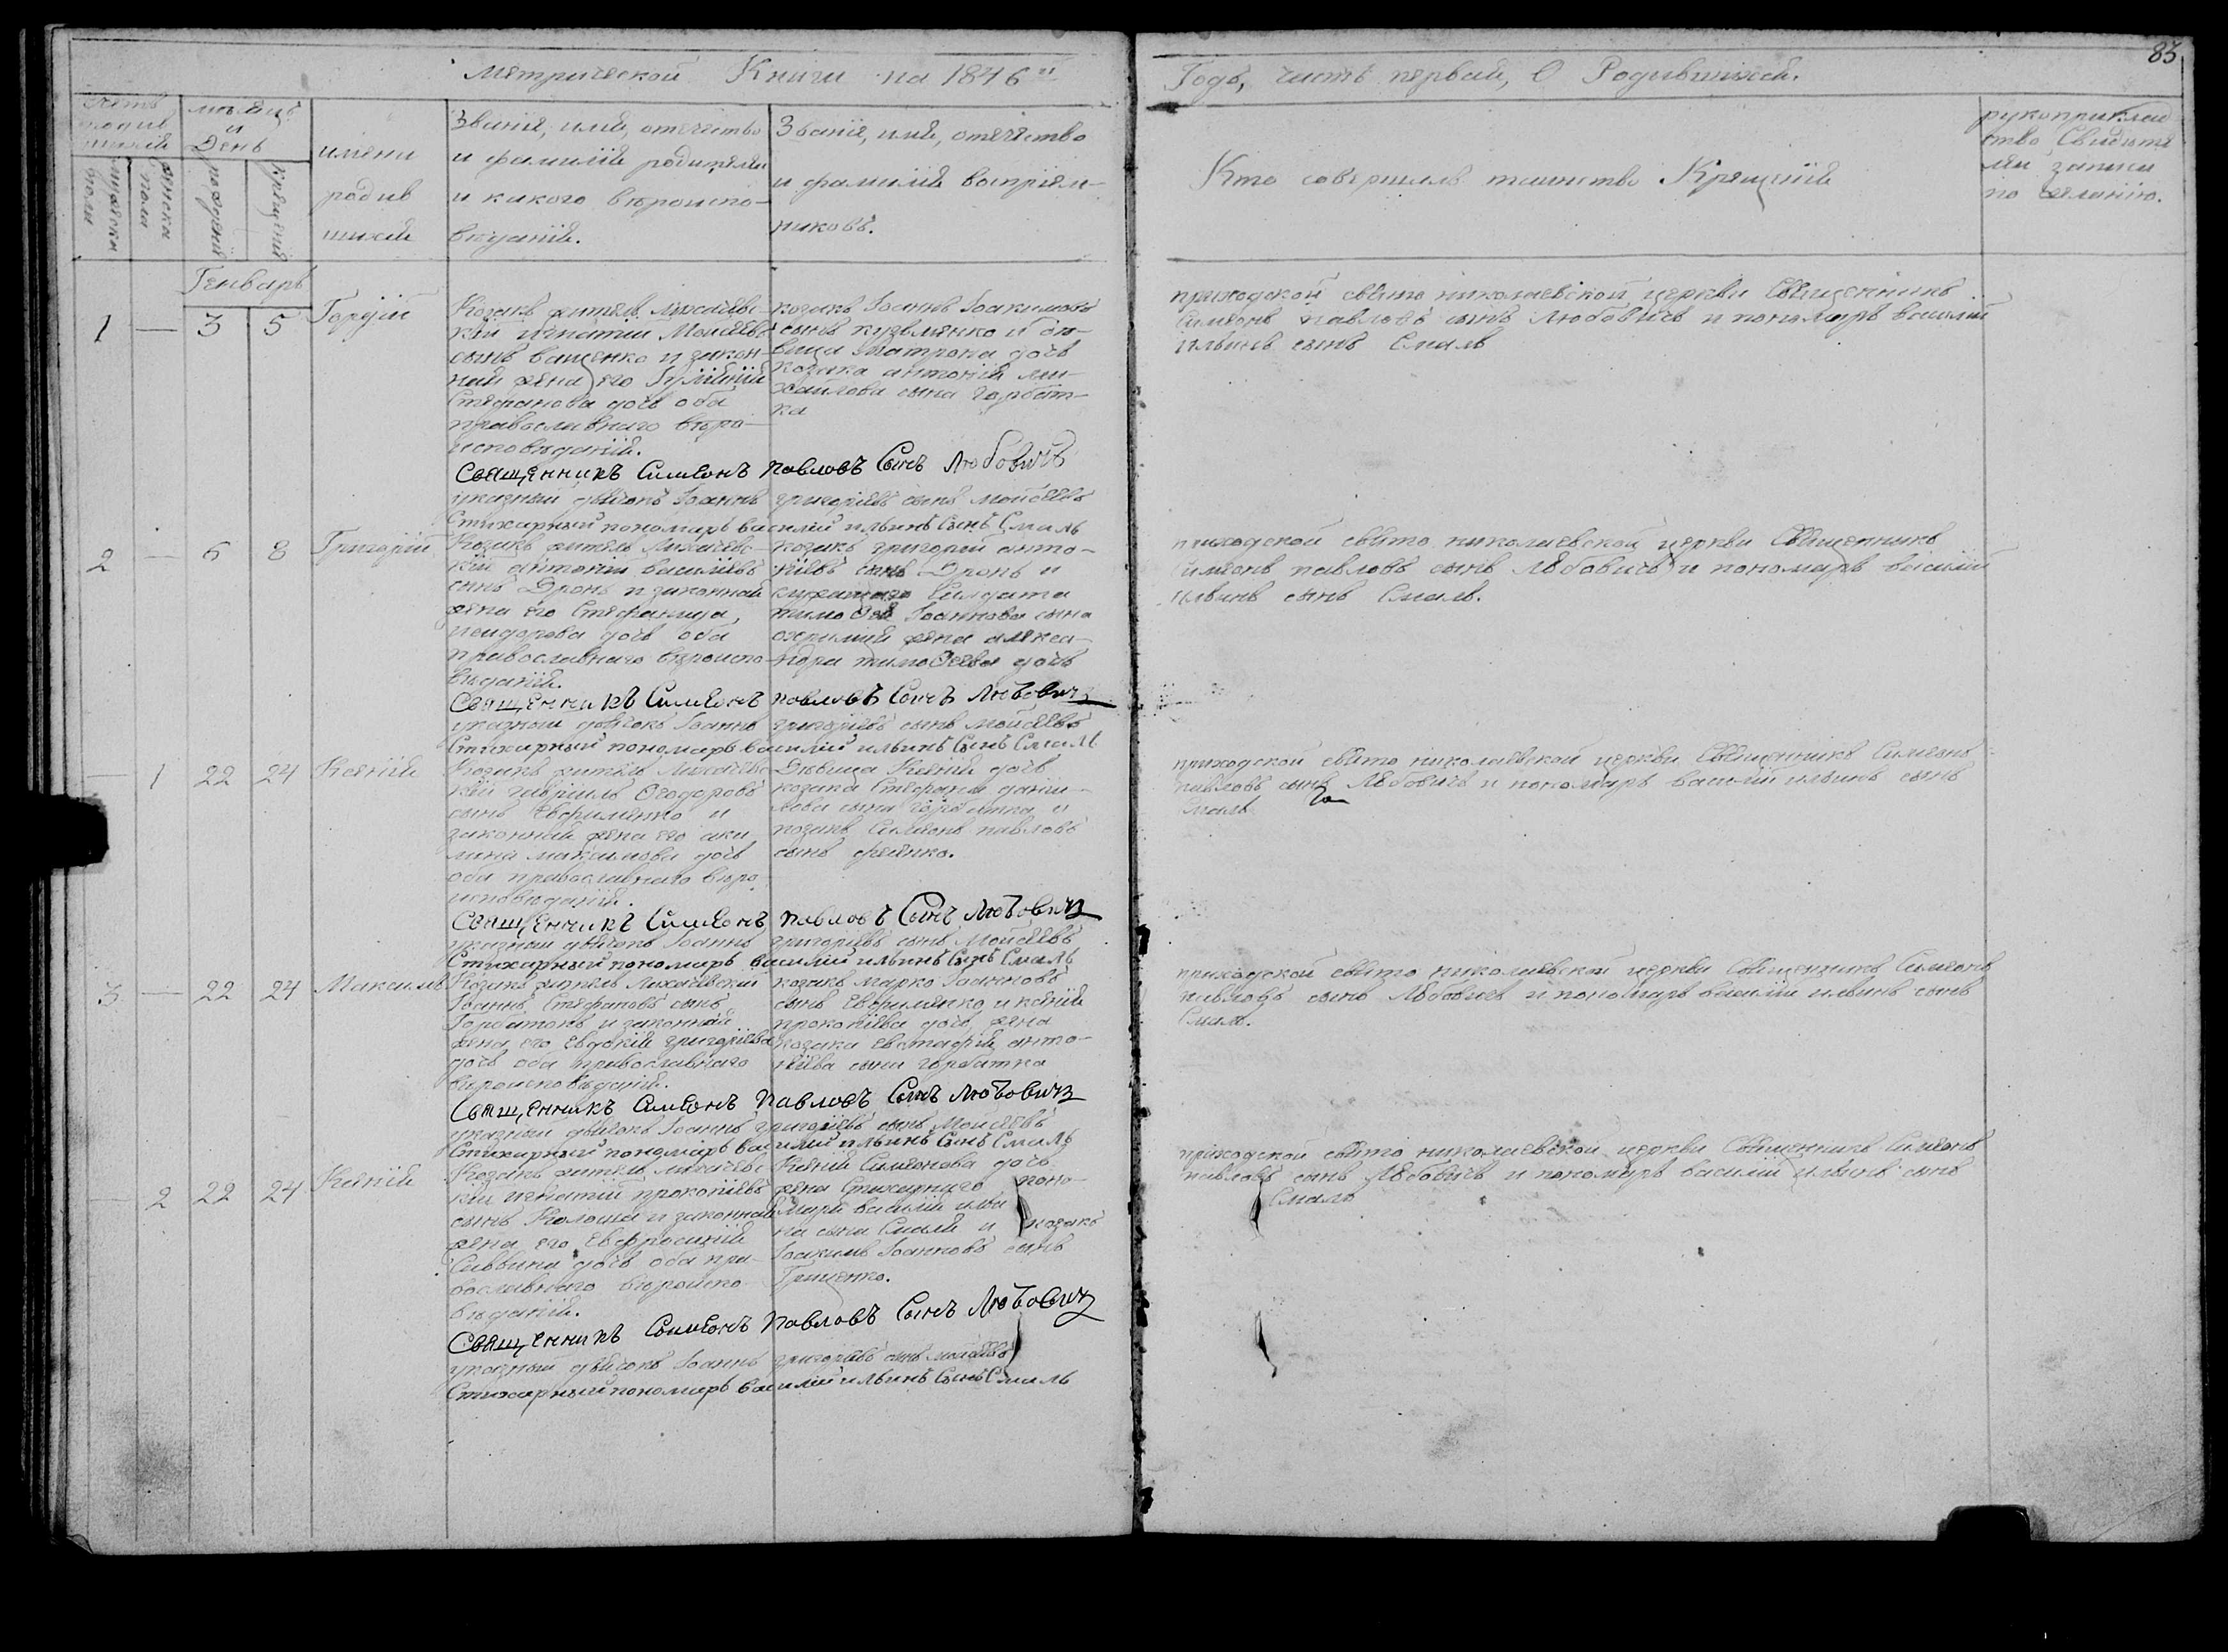 83
Метрической Книги на 1846й
Годъ, часть первая, О Родившихся.
Счетъ родив шихся
мѣсяцъ и День
мужеска пола
женска пола
рожденія
крещенія
имена родив шихся
Званіе, имя, отечество и фамилія родителей и какого вѣроиспо- вѣданія.
Званіе, имя, отечество и фамилія воспріем- никовъ.
Кто совершалъ таинство Крещенія
рукоприклад ство Свидѣте лей записи по желанію.
Генварь
1 — 3 5 Гордій
Козакъ житель Лихачевс-
кій игнатій Моисѣевъ
сынъ ващенко и закон-
ная жена его Іуліанія
Стефанова дочь оба
православнаго вѣро-
исповѣданія.
козакъ Іоаннъ Іоакимовъ
сынъ кузьменко и дѣ-
вица Матрона дочь
козака антонія ми-
хайлова сына Горбат-
ка
приходской свято николаевской церкви Священникъ
Симеонъ павловъ сынъ Любовичъ и пономарь василій
ильинъ сынъ Смаль
Священникъ Симеонъ павловъ Сынъ Любовичъ
указный дьячокъ Іоаннъ григоріевъ сынъ Мойсѣевъ
Стихарный пономарь василій ильинъ Сынъ Смаль
2 — 6 8 Григорій
Козакъ житель Лихачевс-
кій антоній василіевъ
сынъ Дронь и законная
жена его Стефанида,
исидорова дочь оба
православнаго вѣроиспо-
вѣданія.
козакъ григорій анто-
ніевъ сынъ Дронь и
Солдата
тимоѳея Іоаннова сына
жена алекса-
ндра тимоѳеева дочь
приходской свято николаевской церкви Священникъ
Симеонъ павловъ сынъ Любовичъ и пономарь василій
ильинъ сынъ Смаль.
Священникъ Симеонъ павловъ Сынъ Любовичъ
указный дьячокъ Іоаннъ григоріевъ сынъ Мойсѣевъ
Стихарный пономарь василій ильинъ Сынъ Смаль
— 1 22 24 Ксенія
Козакъ житель Лихачевс-
кій гавріилъ Ѳеодоровъ
сынъ Евфименко и
законная жена его аки-
лина максимова дочь
оба православнаго вѣро-
исповѣданія.
Дѣвица Ксенія дочь
козака Стефана дані-
лова сына горбатка и
козакъ Симеонъ павловъ
сынъ
приходской свято николаевской церкви Священникъ Симеонъ
павловъ сынъ Любовичъ и пономарь василій ильинъ сынъ
Смаль
Священникъ Симеонъ павловъ Сынъ Любовичъ
указный дьячокъ Іоаннъ григоріевъ сынъ Мойсѣевъ
Стихарный пономарь василій ильинъ Сынъ Смаль
3 — 22 24 Максимъ
Козакъ житель Лихачевскій
Іоаннъ Стефановъ сынъ
Горбатокъ и законная
жена его Евдокія григоріева
дочь оба православнаго
вѣроисповѣданія.
козакъ марко Іоанновъ
сынъ Евфименко и ксенія
прокопіева дочь жена
козака евстафія анто-
ніева сына горбатка
приходской свято николаевской церкви Священникъ Симеонъ
павловъ сынъ Любовичъ и пономарь василій ильинъ сынъ
Смаль.
Священникъ Симеонъ Павловъ Сынъ Любовичъ
указный дьячокъ Іоаннъ григоріевъ сынъ Мойсѣевъ
Стихарный пономарь василій ильинъ Сынъ Смаль
— 2 22 24 Ксенія
Козакъ житель лихачевс-
кій игнатій прокопіевъ
сынъ Колоша и законная
жена его Евфросинія
Саввина дочь оба пра-
вославнаго вѣроиспо-
вѣданія.
Ксенія Симеонова дочь
жена Стихарнаго поно-
маря василія ильи-
на сына Смаля и козакъ
Іоакимъ Іоанновъ сынъ
Грищенко.
приходской свято николаевской церкви Священникъ Симеонъ
павловъ сынъ Любовичъ и пономарь василій ильинъ сынъ
Смаль
Священникъ Симеонъ Павловъ Сынъ Любовичъ
указный дьячокъ Іоаннъ григоріевъ сынъ мойсѣевъ
Стихарный пономарь василій ильинъ Сынъ Смаль